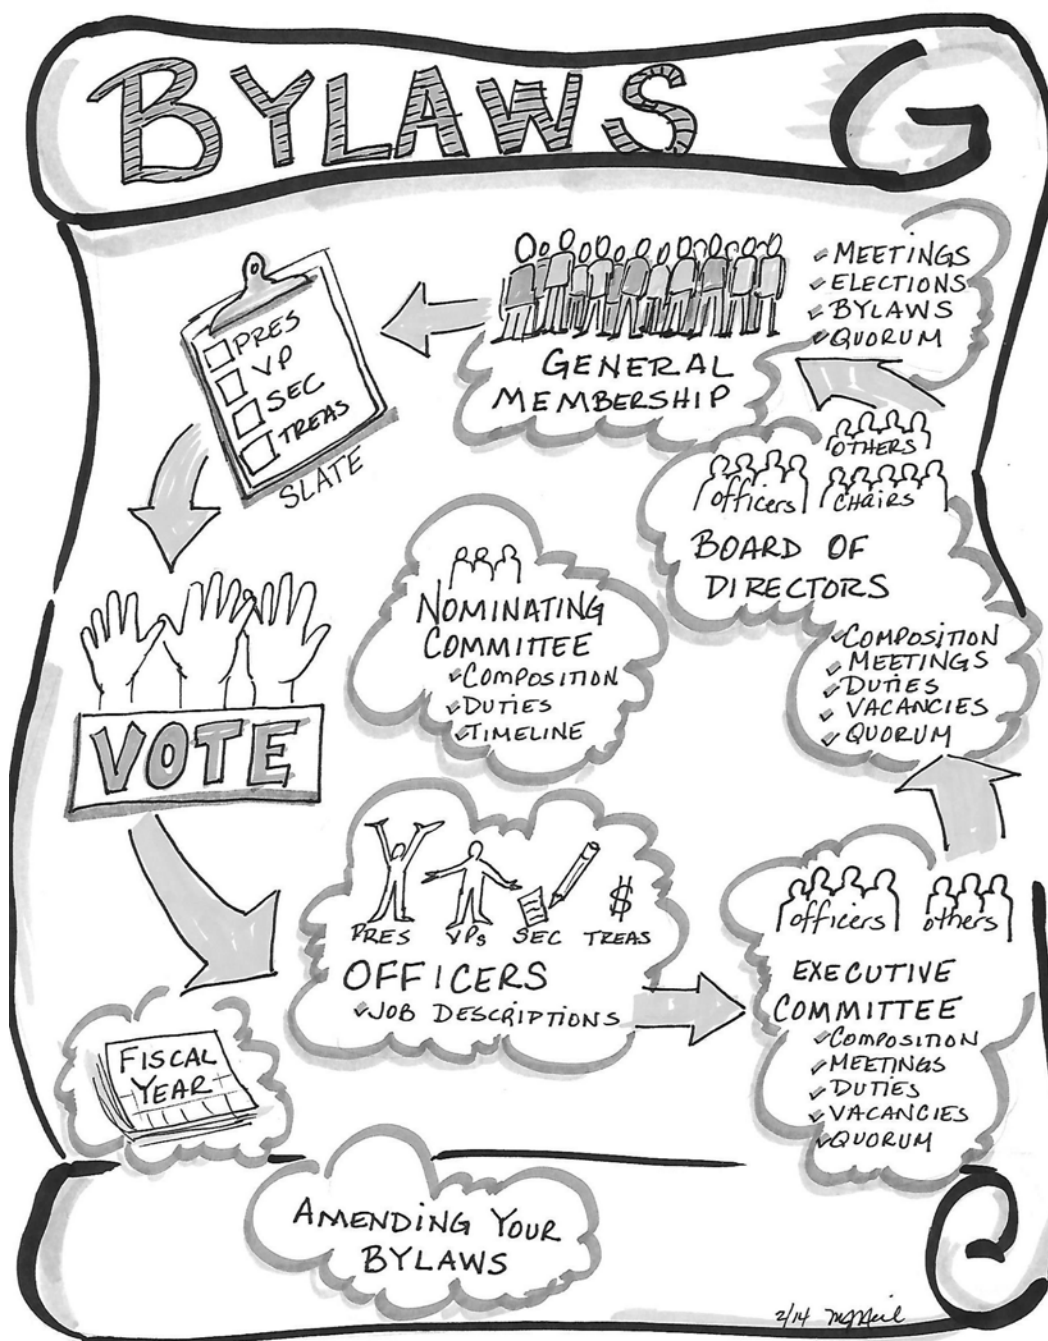 BYLAWS
MEETINGS
ELECTIONS
BYLAWS
QUORUM
GENERAL
MEMBERSHIP
PRES
VP
SEC
TREAS
SLATE
OTHERS
officers
CHAIRS
BOARD OF
DIRECTORS
COMPOSITION
MEETINGS
DUTIES
VACANCIES
QUORUM
NOMINATING
COMMITTEE
COMPOSITION
DUTIES
TIMELINE
VOTE
PRES VPs SEC $ TREAS
OFFICERS
JOB DESCRIPTIONS
officers others
EXECUTIVE
COMMITTEE
COMPOSITION
MEETINGS
DUTIES
VACANCIES
QUORUM
FISCAL
YEAR
AMENDING YOUR
BYLAWS
2/14 McNeil